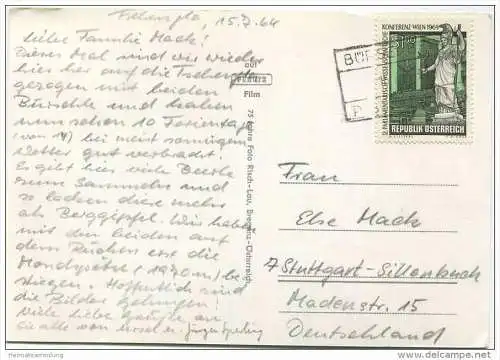 15.7.64
liebe Familie Mack!
Dieses Mal sind wir wieder
hier her auf die Tschengla
gezogen mit beiden
Bürschle und haben
nun schon 10 Ferientage
(von 14) bei meist sonnigem
Wetter gut verbracht.
Es gibt hier viele Beeren
zum Sammeln und
so locken diese mehr
als Berggipfel. Wir haben
mit den beiden auf
dem Rücken erst die
Mondspitze (1970 m) be
stiegen. Hoffentlich sind
die Bilder gelungen!
Viele liebe Grüße an
Sie alle von
auf
PERUTZ
Film
75 Jahre Foto Risch-Lau, Bregenz-Österreich
KONFERENZ-WIEN 1964
REPUBLIK ÖSTERREICH
Frau
Else Mack
7 Stuttgart-Sillenbuch
Madenstr. 15
Deutschland